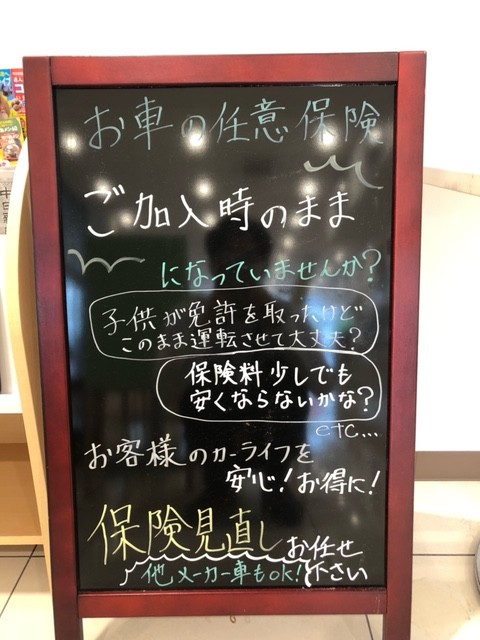 お車の任意保険
ご加入時のまま
になっていませんか?
子供が免許を取ったけど
このまま運転させて大丈夫?
保険料少しでも
安くならないかな?
etc...
お客様のカーライフを
安心!お得に!
保険見直しお任せ
下さい
他メーカー車もok!